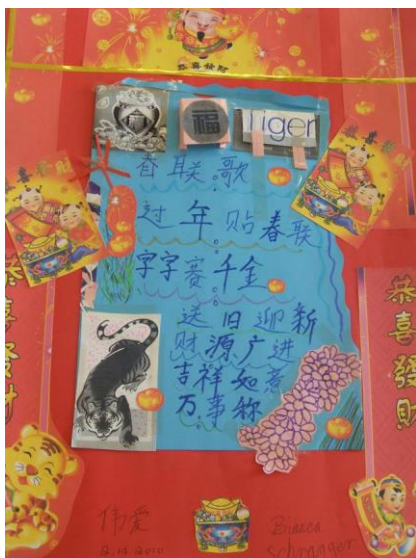 恭喜發財
福
Tiger
春联歌
过年贴春联
字字赛千金
送旧迎新
财源广进
吉祥如意
万事称
恭喜發財
恭喜發財
伟爱
2.14.2010
Bianca
Schrager